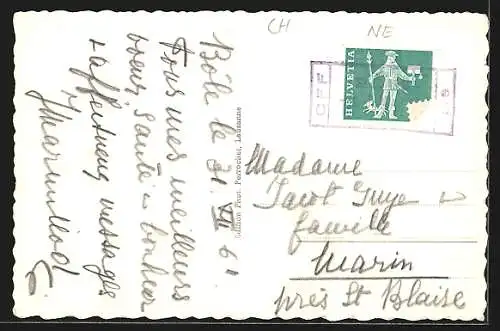 CH
NE
HELVETIA
CFF
Bôle le 31. VII 61
Tous mes meilleurs
voeux, santé & bonheur
& affectueux messages
Madame
Jacot Guye
famille
Marin
près St Blaise
Edition Phot. Perrochet, Lausanne